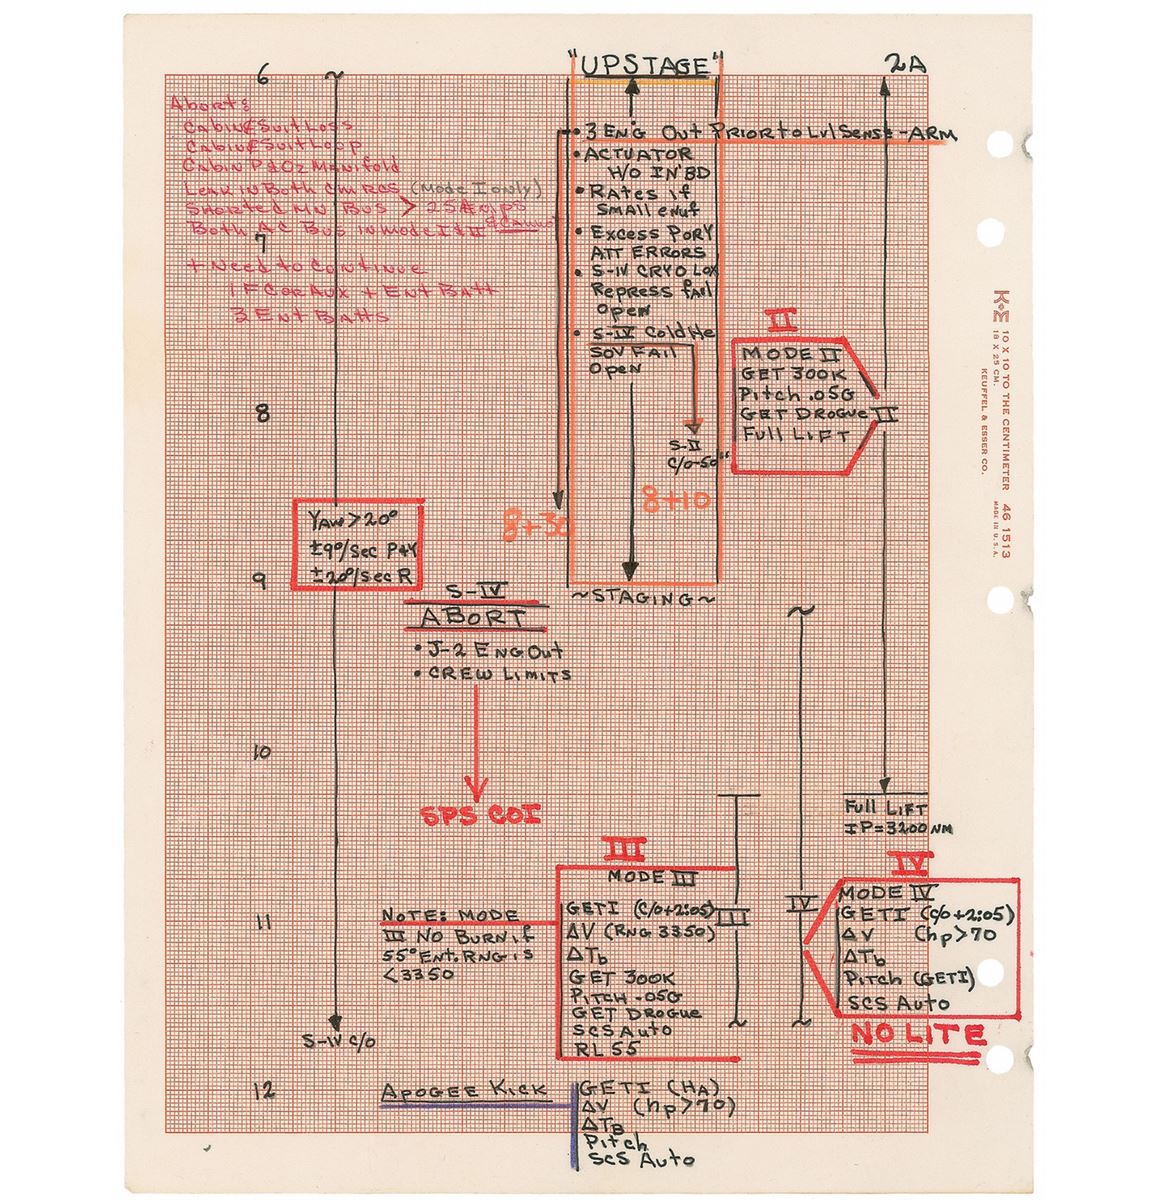 6
~
"UPSTAGE"
2A
Abort:
Cabin & Suit Loss
Cabin & Suit Loop
Cabin P & O2 Manifold
Leak in Both CM RCS (Mode I only)
Shorted MN Bus > 25 Amps
Both AC Bus in Mode I & II
7
+ Need to Continue
1 FC or Aux + Ent Batt
3 Ent Batts
• 3 ENG Out Prior to Lvl Sense-ARM
• ACTUATOR
H/O IN'BD
• Rates if
Small enuf
• Excess P or Y
ATT ERRORS
• S-IV CRYO LOX
Repress fail
Open
• S-IV Cold He
SOV FAIL
Open
S-II
C/O-50"
8+10
8+30
II
MODE II
GET 300K
Pitch .05G
GET DROGUE
Full LIFT
II
8
YAW > 20°
±9°/Sec P+Y
±20°/Sec R
9
~STAGING~
S-IV
ABORT
• J-2 ENG Out
• CREW LIMITS
SPS COI
~
10
Full LIFT
IP=3200 NM
III
MODE III
GETI (C/O+2:05)
ΔV (RNG 3350)
ΔTb
GET 300K
PITCH .05G
GET DROGUE
SCS AUTO
RL 55
III
~
IV
~
IV
MODE IV
GETI (C/O+2:05)
ΔV (hp>70
ΔTb
Pitch (GETI)
SCS Auto
NO LITE
11
NOTE: MODE
III NO BURN if
55° Ent. RNG is
<3350
S-IV C/O
12
APOGEE KICK
GETI (HA)
ΔV (hp>70)
ΔTB
Pitch
SCS Auto
K+E
10 X 10 TO THE CENTIMETER 46 1513
18 X 25 CM. MADE IN U.S.A.
KEUFFEL & ESSER CO.